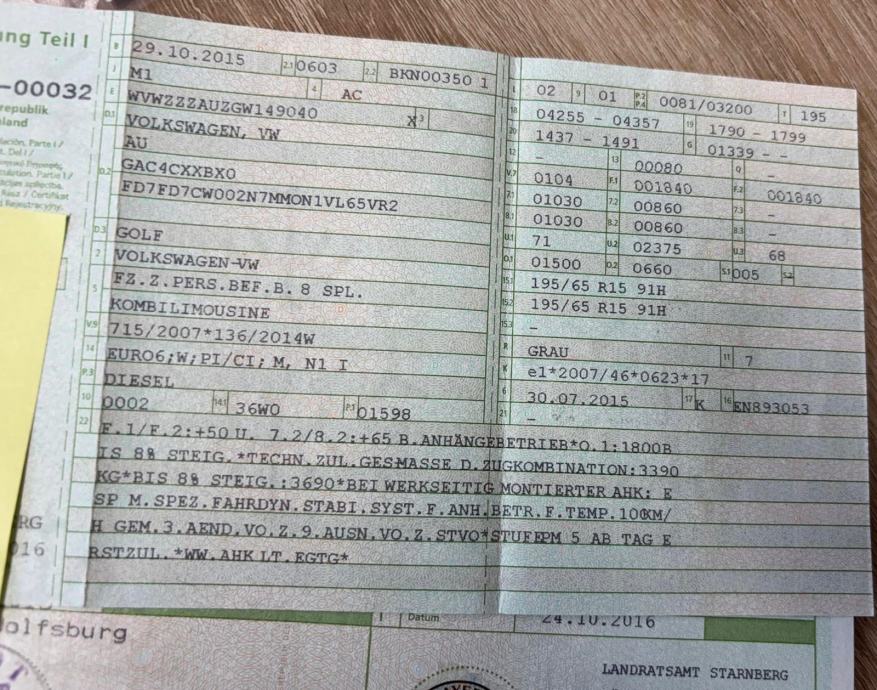 ng Teil I
-00032
republik
land
B 29.10.2015 2.1 0603 2.2 BKN00350 1
J M1 4 AC
E WVWZZZAUZGW149040 X 3
D.1 VOLKSWAGEN, VW
AU
D.2 GAC4CXXBX0
FD7FD7CW002N7MMON1VL65VR2
D.3 GOLF
2 VOLKSWAGEN-VW
5 FZ.Z.PERS.BEF.B. 8 SPL.
KOMBILIMOUSINE
V.9 715/2007*136/2014W
14 EURO6;W;PI/CI; M, N1 I
P.3 DIESEL
10 0002 14.1 36W0 P.1 01598
L 02 9 01 P.2 P.4 0081/03200 T 195
18 04255 - 04357 19 1790 - 1799
20 1437 - 1491 G 01339 - -
12 - 13 00080 Q -
V.7 0104 F.1 001840 F.2 001840
7.1 01030 7.2 00860 7.3 -
8.1 01030 8.2 00860 8.3 -
U.1 71 U.2 02375 U.3 68
O.1 01500 O.2 0660 S.1 005 S.2
15.1 195/65 R15 91H
15.2 195/65 R15 91H
15.3 -
R GRAU 11 7
K e1*2007/46*0623*17
6 30.07.2015 17 K 16 EN893053
21 -
22 F.1/F.2:+50 U. 7.2/8.2:+65 B.ANHÄNGEBETRIEB*O.1:1800B
IS 8% STEIG.*TECHN.ZUL.GESMASSE D.ZUGKOMBINATION:3390
KG*BIS 8% STEIG.:3690*BEI WERKSEITIG MONTIERTER AHK: E
SP M.SPEZ.FAHRDYN.STABI.SYST.F.ANH.BETR.F.TEMP.100KM/
H GEM.3.AEND.VO.Z.9.AUSN.VO.Z.STVO*STUFEPM 5 AB TAG E
RSTZUL.*WW.AHK LT.EGTG*
RG
016
Datum 24.10.2016
olfsburg
LANDRATSAMT STARNBERG